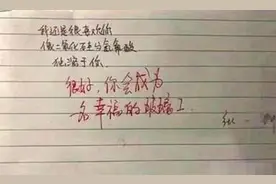 我还是很喜欢你
像二氧化石圭与氢氟酸
他溶于你.
很好，你会成为
一名幸福的玻璃工